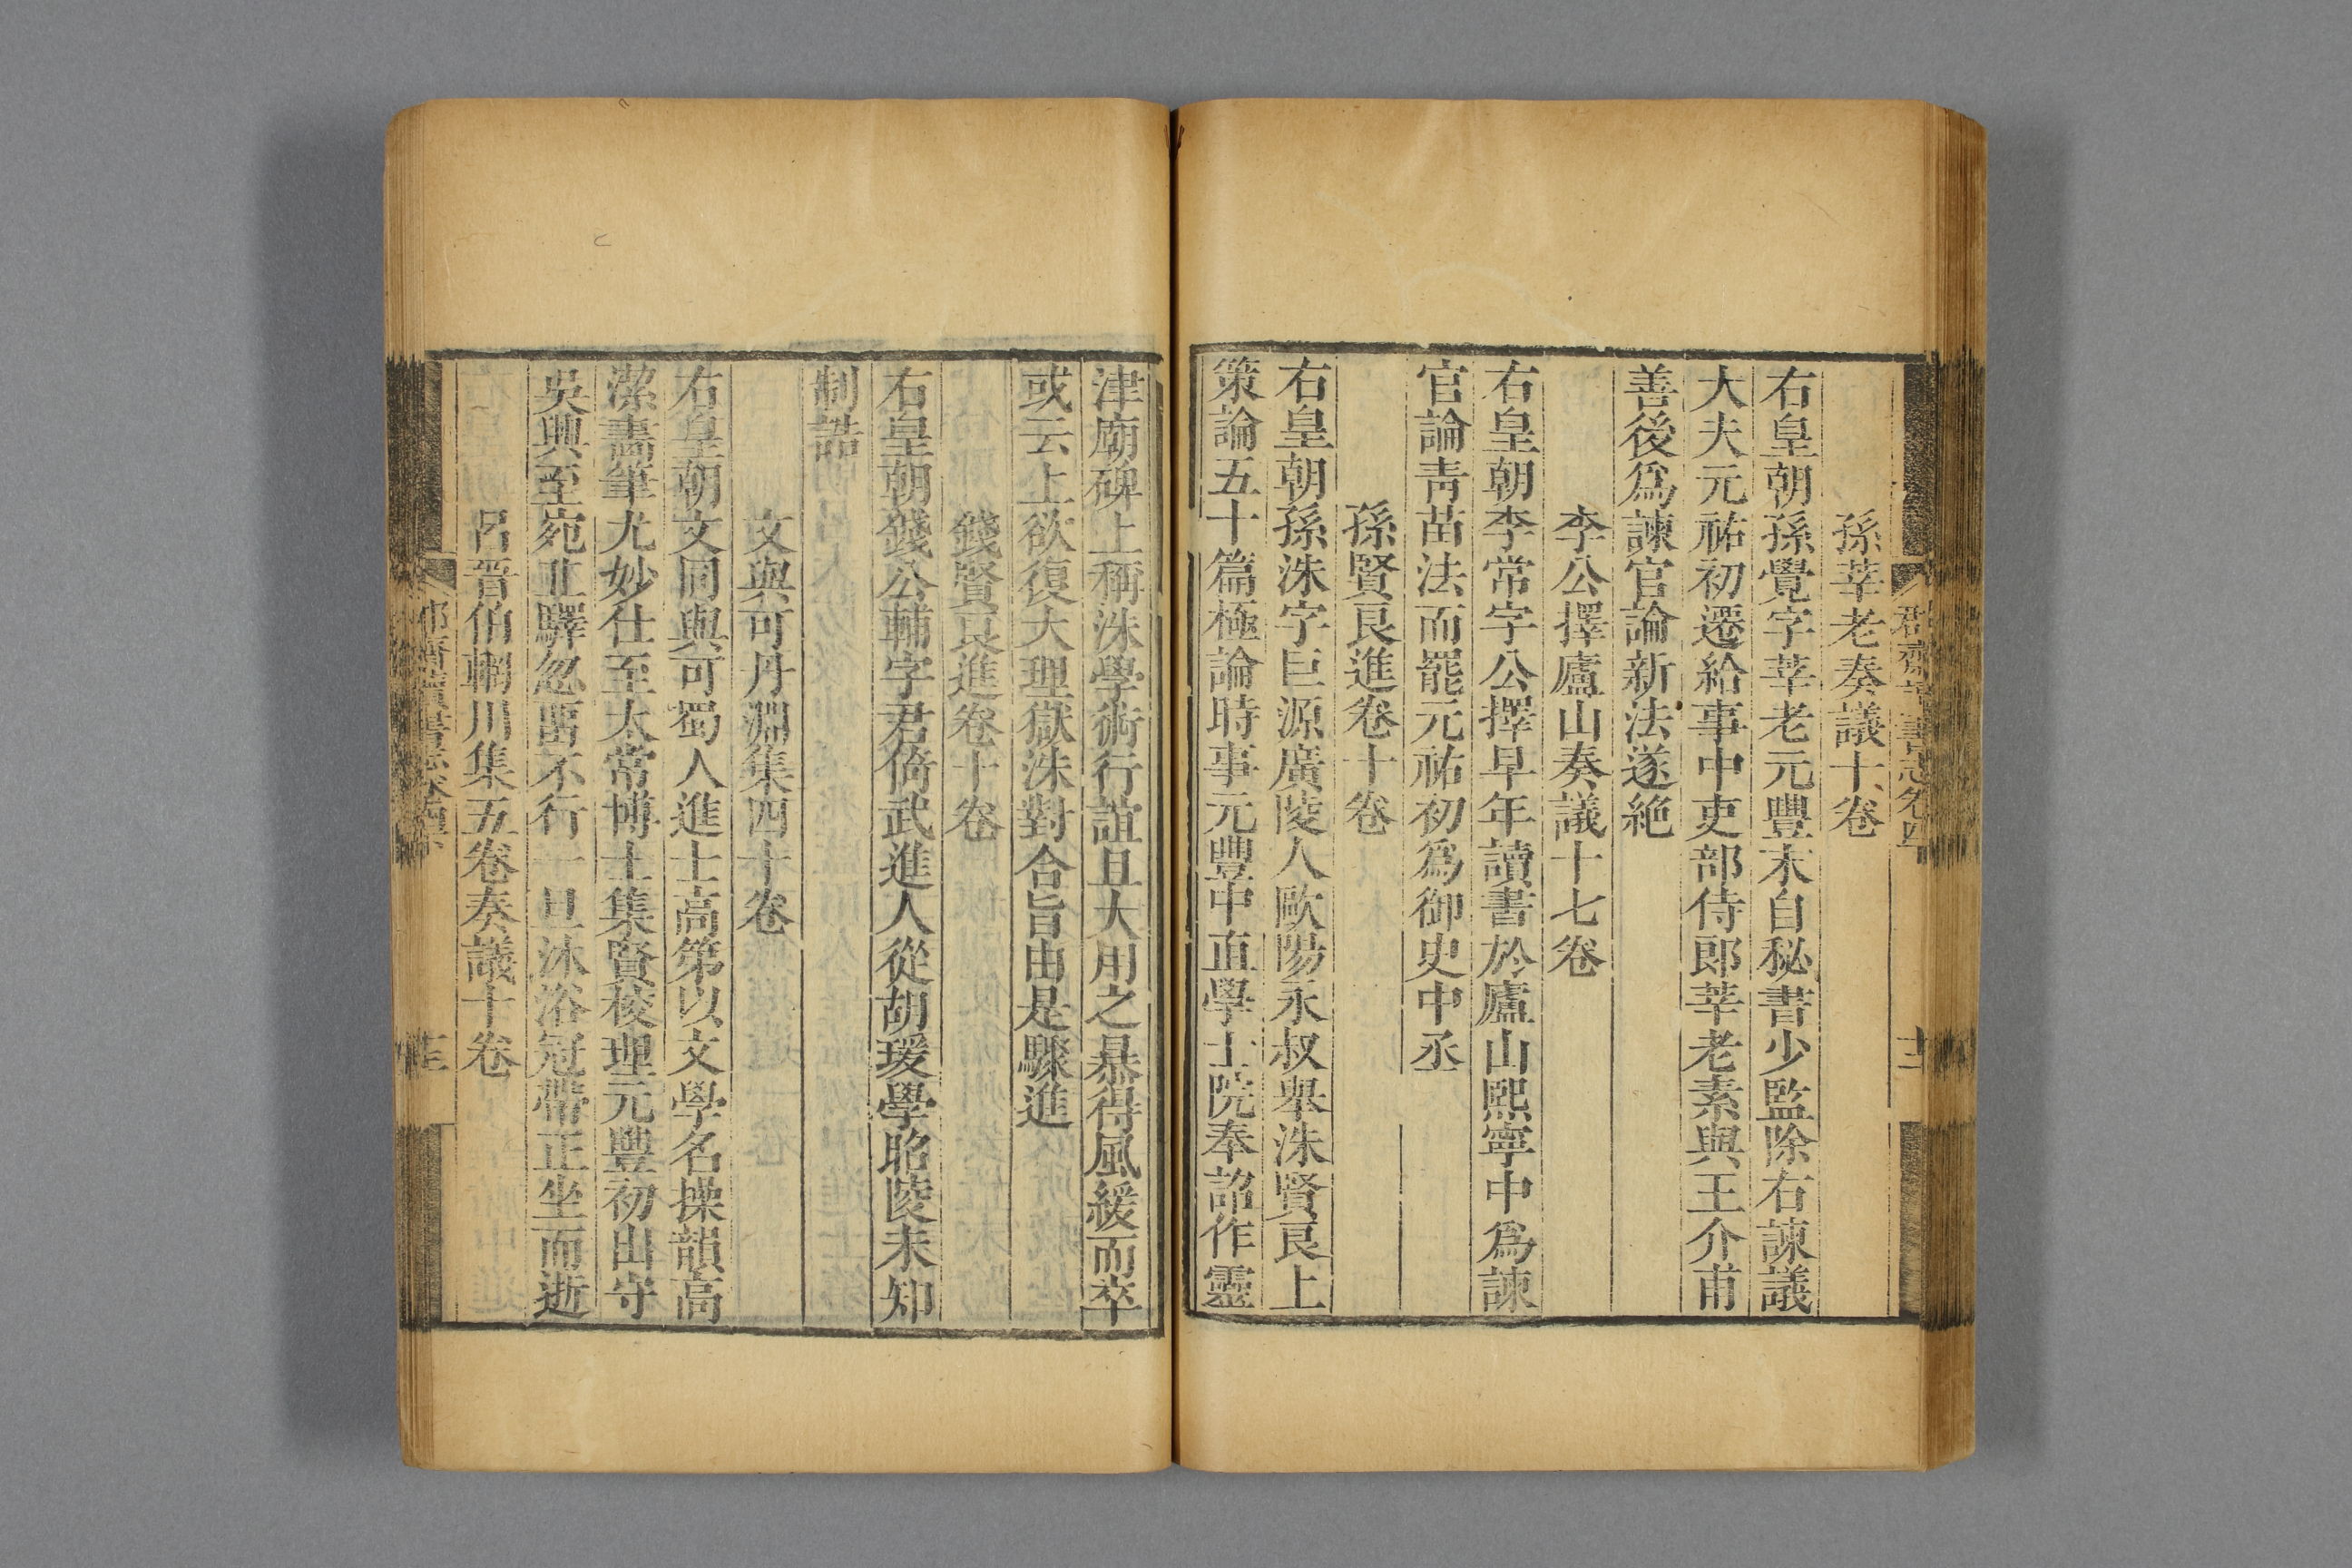 孫莘老奏議十卷
右皇朝孫覺字莘老元豐末自秘書少監除右諫議
大夫元祐初遷給事中吏部侍郎莘老素與王介甫
善後爲諫官論新法遂絶
李公擇廬山奏議十七卷
右皇朝李常字公擇早年讀書於廬山熙寧中爲諫
官論靑苗法而罷元祐初爲御史中丞
孫賢良進卷十卷
右皇朝孫洙字巨源廣陵人歐陽永叔舉洙賢良上
策論五十篇極論時事元豐中直學士院奉詔作靈
津廟碑上稱洙學術行誼且大用之暴得風緩而卒
或云上欲復大理獄洙對合旨由是驟進
錢賢良進卷十卷
右皇朝錢公輔字君倚武進人從胡瑗學昭陵末知
制誥
文與可丹淵集四十卷
右皇朝文同與可蜀人進士高第以文學名操韻高
潔畵筆尤妙仕至太常博士集賢校理元豐初出守
吳興至宛丘驛忽畱不行一旦沐浴冠帶正坐而逝
呂晉伯輞川集五卷奏議十卷